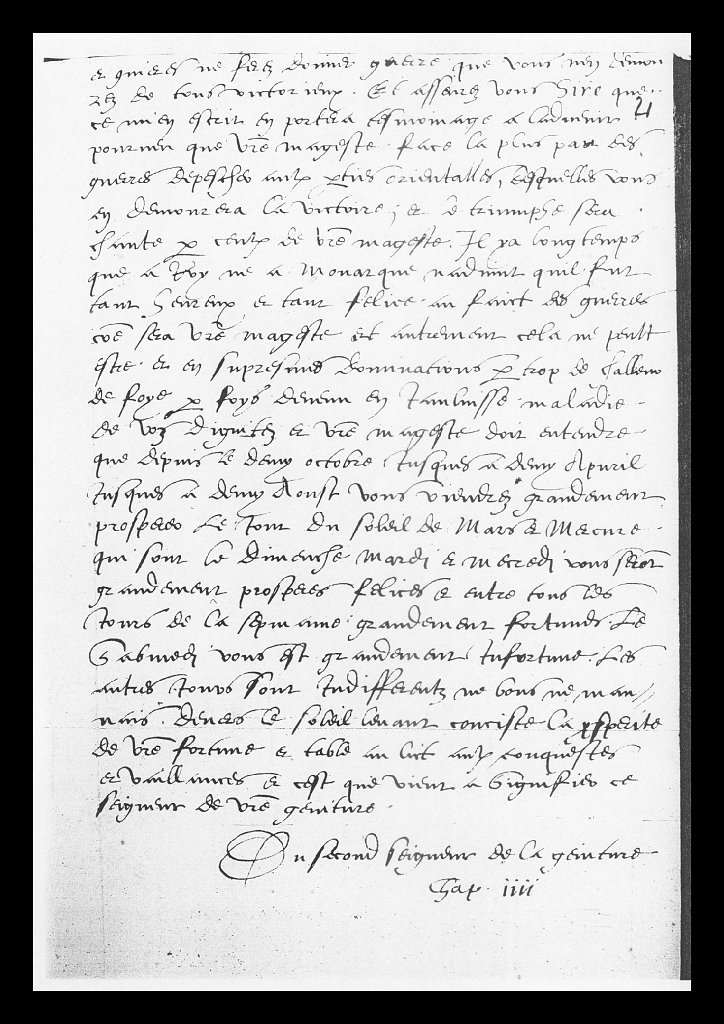 et gueres ne ferez donner guerre que vous nen demou
rez de tous victorieux. Et asseurez vous Sire que
ce mien escrit en portera tesmoinage a ladvenir 4
pourveu que vre mageste face la plus part des
guerres depescheo aulx pties orientalles, desquelles vous
en demourera la victoire, et le triumphe sera
chante p ceulx de vre mageste. Il ya longtemps
que a Roy ne a Monarque nadvint quil fut
tant heureux et tant felice au faict des guerres
coe sera vre mageste et autrement cela ne peult
estre. et en supresmes dominations p trop de
de foye p foys devenu en maladie
de voz dignitez et vre mageste doit entendre
que depuis le demy octobre Jusques a demy Apvril
Jusques a demy Aoust vous viendrez grandement
prospereo Le Jour du soleil de Mars et Mercure
qui sont le dimenche Mardi et Mecredi vous seront
grandement prosperes felices et entre tous les
Jours de la sepmaine grandement fortunes. Le
Sabmedi vous est grandement Infortune. Les
autres Jours sont Indifferentz ne bons ne mau//
vais. Devers le soleil levant consiste la psperite
de vre fortune et table au lict aulx conquestes
et vaillances et cest que vient a Signifieo ce
seigneur de vre geniture.
Du second seigneur de la geniture
Chap. iiii